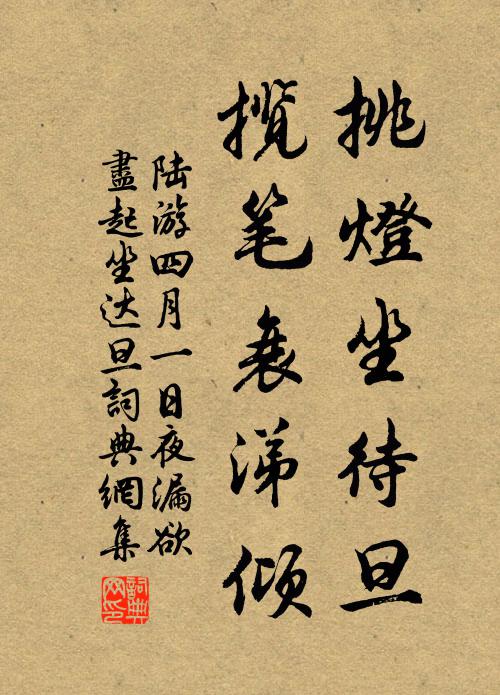 挑燈坐待旦
揽笔衰涕倾
陆游四月一日夜漏欲
盡起坐达旦詞典網集
詞典
网印